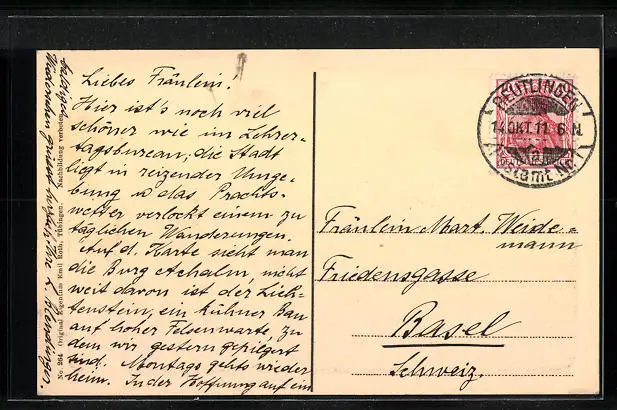 Liebes Fräulein!
Hier ist's noch viel
schöner wie im Lehrer-
tagsbureau; die Stadt
liegt in reizender Umge-
bung u das Prachts-
wetter verlockt einem zu
täglichen Wanderungen.
Auf d. Karte sieht man
die Burg Achalm, nicht
weit davon ist der Lich-
tenstein, ein kühner Bau
auf hoher Felsenwarte, zu
dem wir gestern gepilgert
sind. Montags gehts wieder
heim. In der Hoffnung auf ein
baldiges
Wiedersehen grüsst herzlich Ihre L.
No. 264 Original Eigentum Emil Roth, Tübingen. Nachbildung verboten.
REUTLINGEN
14.OKT.11. 6 N.
Postamt Nr. 1
Fräulein Mart. Weide=
mann
Friedensgasse
Basel
Schweiz.